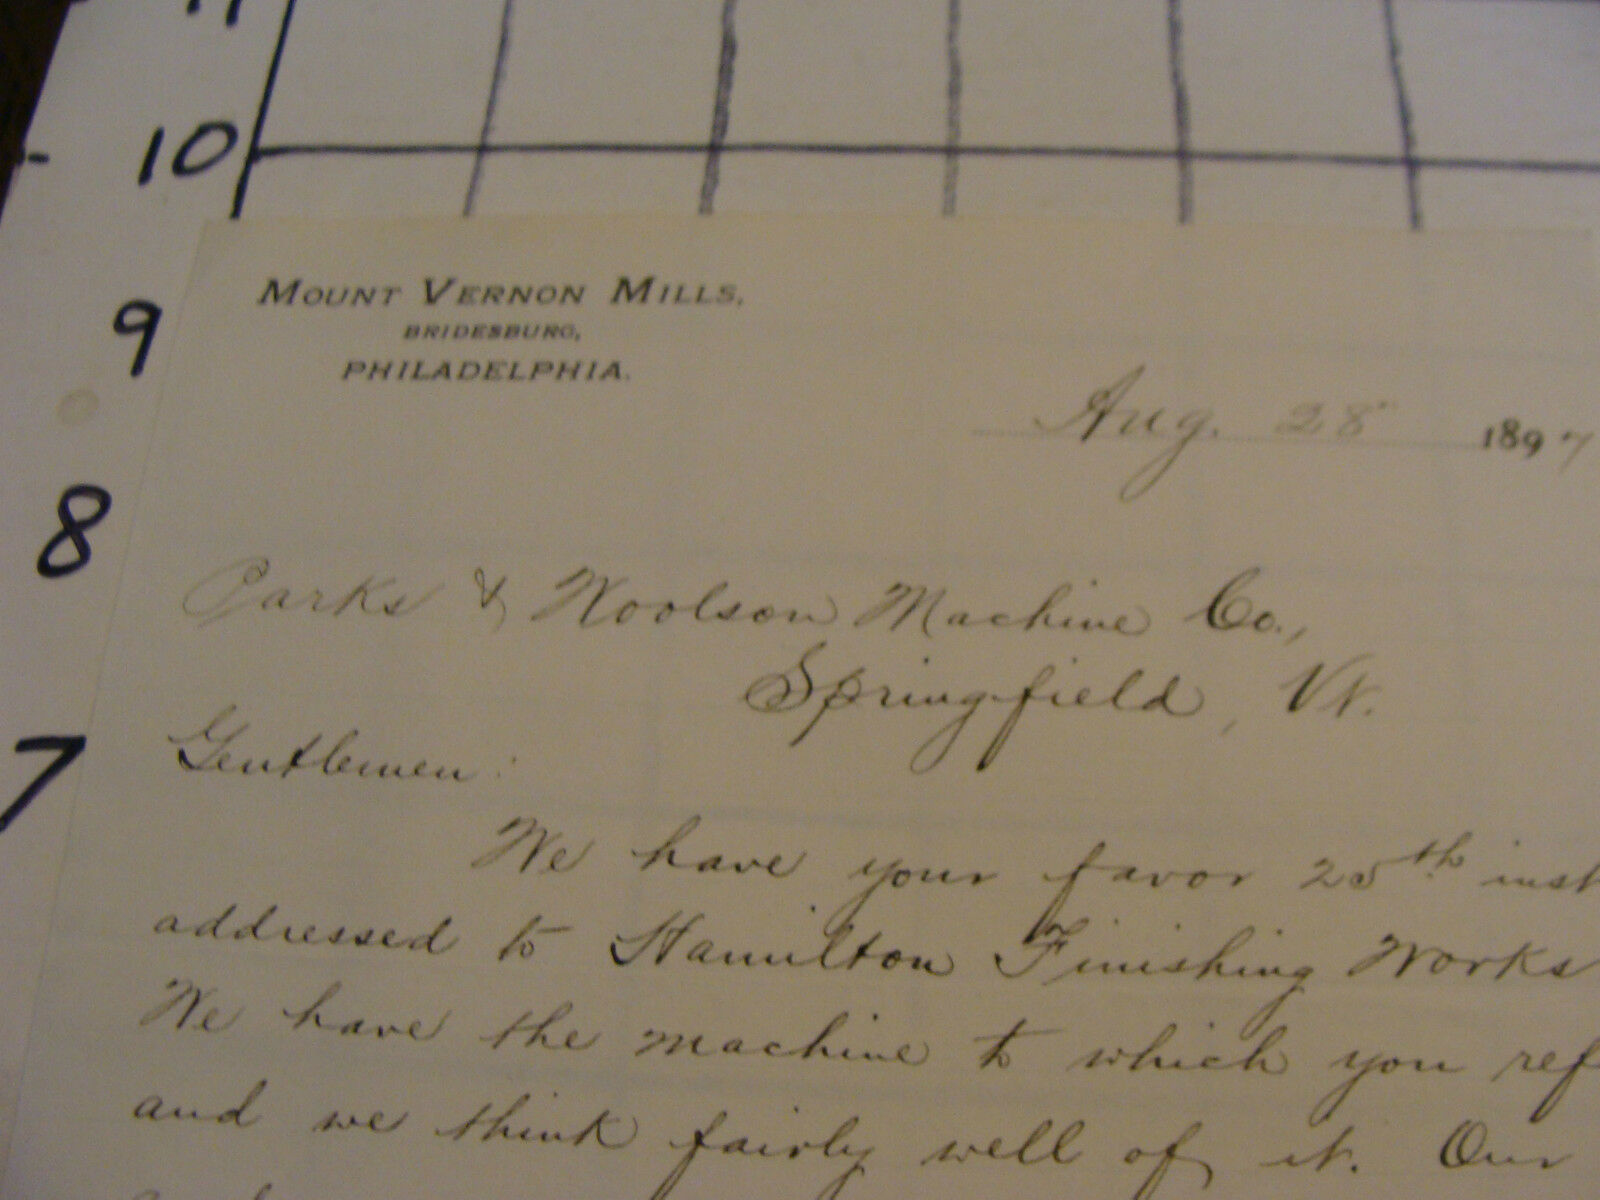 10
9
8
7
MOUNT VERNON MILLS,
BRIDESBURG,
PHILADELPHIA.
Aug. 28" 1897
Parks & Woolson Machine Co.,
Springfield, Vt.
Gentlemen:
We have your favor 25th inst
addressed to Hamilton Finishing Works
We have the machine to which you ref
and we think fairly well of it. Our